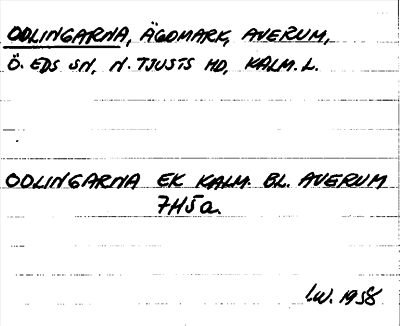 ODLINGARNA, ÄGOMARK, AVERUM,
Ö. EDS SN, N. TJUSTS HD, KALM. L.
ODLINGARNA EK KALM. BL. AVERUM
7H5a.
I.W. 1958